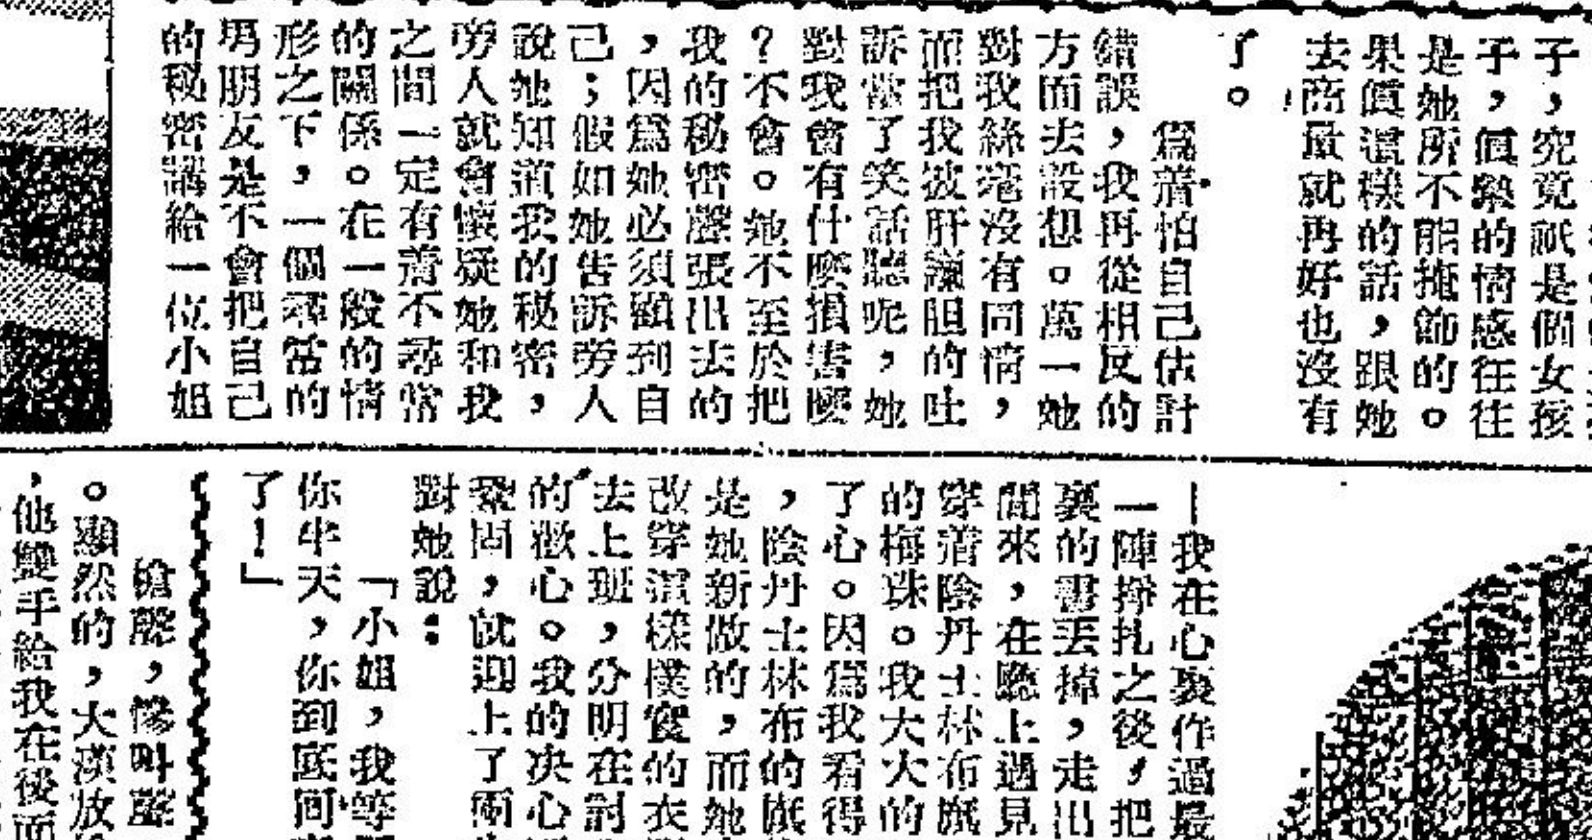 子，究竟祇是個女孩
子，眞摯的情感往往
是她所不能掩飾的。
果眞這樣的話，跟她
去商量就再好也沒有
了。
爲着怕自己估計
錯誤，我再從相反的
方面去設想。萬一她
對我絲毫沒有同情，
而把我披肝瀝胆的吐
訴當了笑話聽呢，她
對我會有什麼損害麼
？不會。她不至於把
我的秘密聲張出去的
，因爲她必須顧到自
己；假如她告訴旁人
說她知道我的秘密，
旁人就會懷疑她和我
之間一定有着不尋常
的關係。在一般的情
形之下，一個尋常的
男朋友是不會把自己
的秘密講給一位小姐
—我在心裏作過最
一陣掙扎之後，把
裏的書丟掉，走出
間來，在廳上遇見
穿着陰丹士林布旗
的梅珠。我大大的
了心。因爲我看得
，陰丹士林布的旗
是她新做的，而她
改穿這樣樸實的衣
去上班，分明在討
的歡心。我的決心
鞏固，就迎上了兩
對她說：
「小姐，我等
你半天，你到底同
了！」
槍聲，慘叫聲
。顯然的，大漢放
，他雙手給我在後面